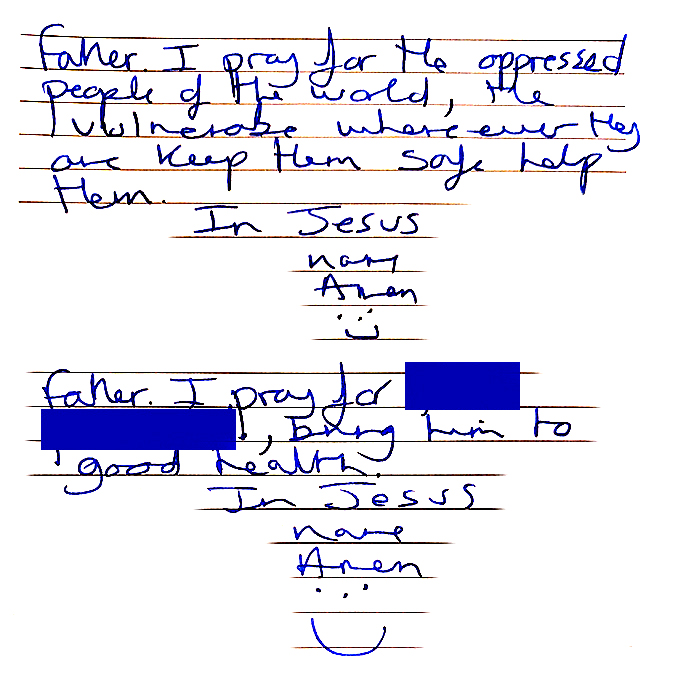 Father. I pray for the oppressed
people of the world, the
vulnerable where ever they
are keep them safe help
them.
In Jesus
name
Amen
Father. I pray for
, bring him to
good health.
In Jesus
name
Amen